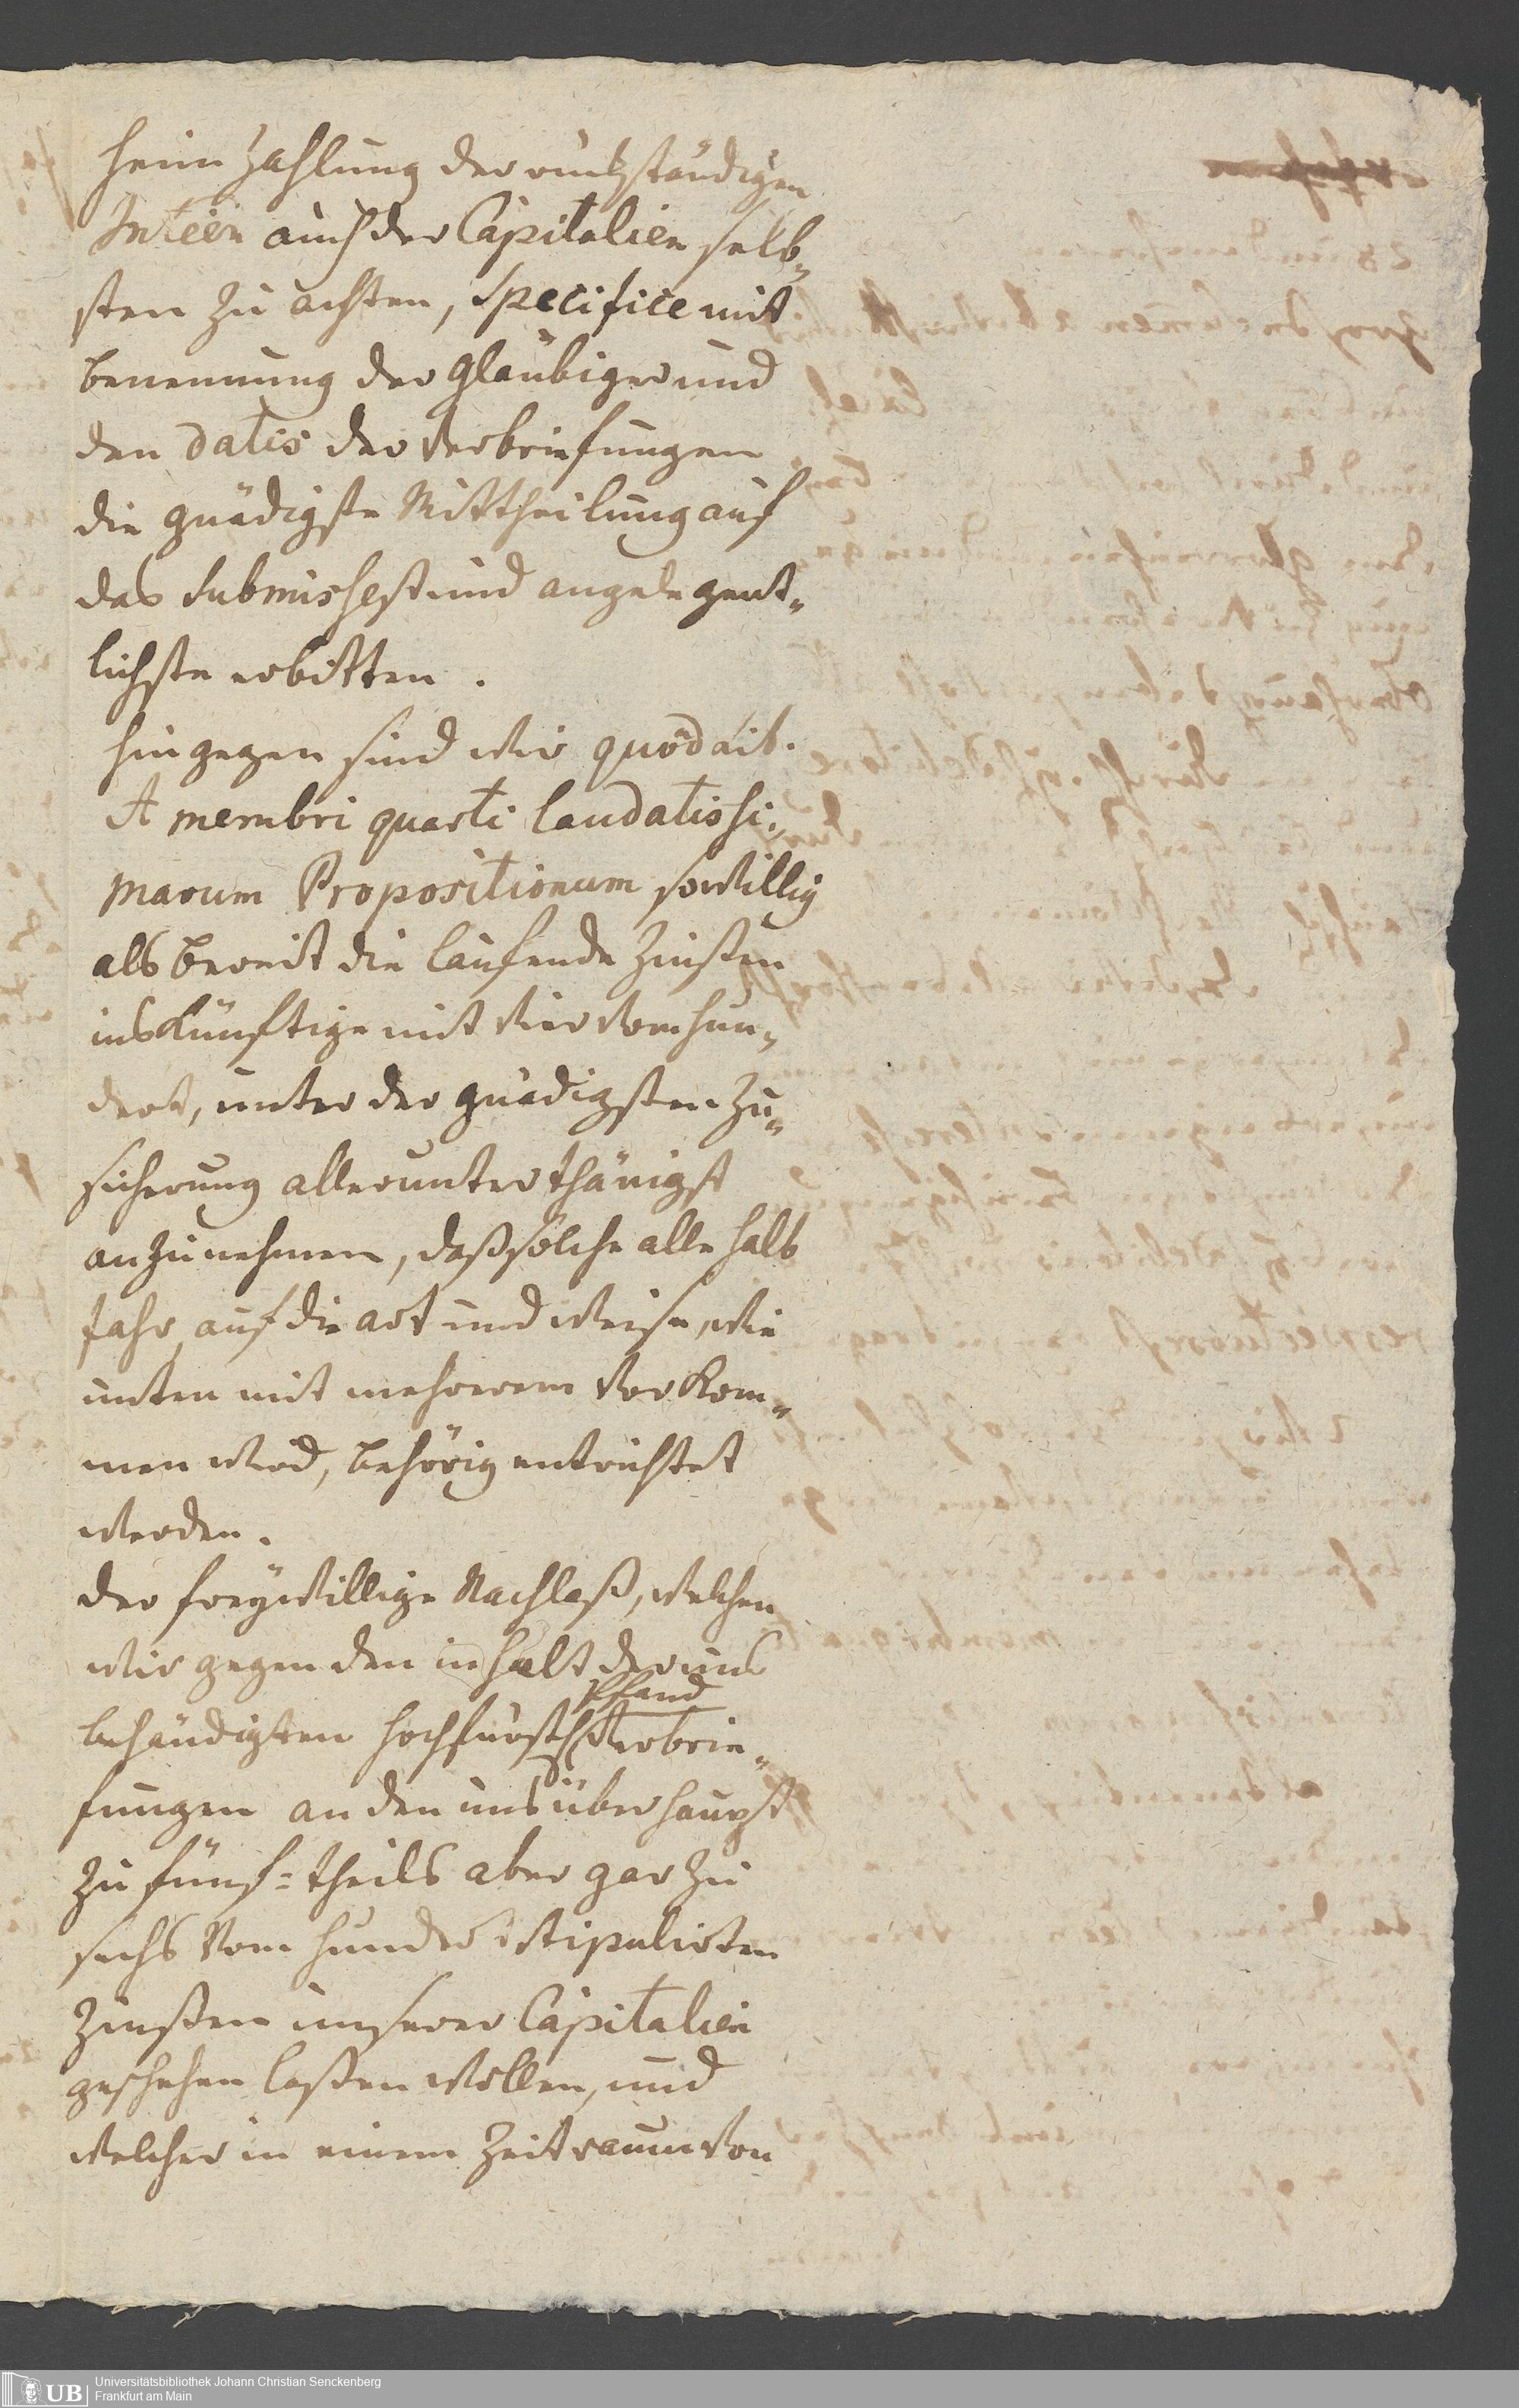 heim Zahlung der rückständigen
Inteen auch der Capitalien selb„
sten zu achten, Specifice mit
benennung der Gläubiger und
den datis der Verbriefungen
die gnädigste Mittheilung auf
das submissest und angelegent„
lichste erbitten.
hingegen sind wir quoad lit.
A membri quarti laudatissi„
marum Propositionum so willig
als bereit die laufende Zinßen
ins Künftige mit vier vom hun„
dert, unter der gnädigsten Zu„
sicherung allerunterthänigst
anzunehmen, daß solche alle halb
Jahr, auf die art und Weise, wie
unten mit mehrerem vorkom„
men wird, behörig entrichtet
werden.
der freywillige Nachlaß, welchen
wir gegen den inhalt der uns
Pfand
behändigten hochfürstl. Verbrie„
fungen an den uns überhaupt
zu fünf= theils aber gar zu
sechs vom hundert stipulirten
Zinßen unserer Capitalien
geschehen laßen wollen, und
welcher in einem Zeitraum von
UB
Universitätsbibliothek Johann Christian Senckenberg
Frankfurt am Main